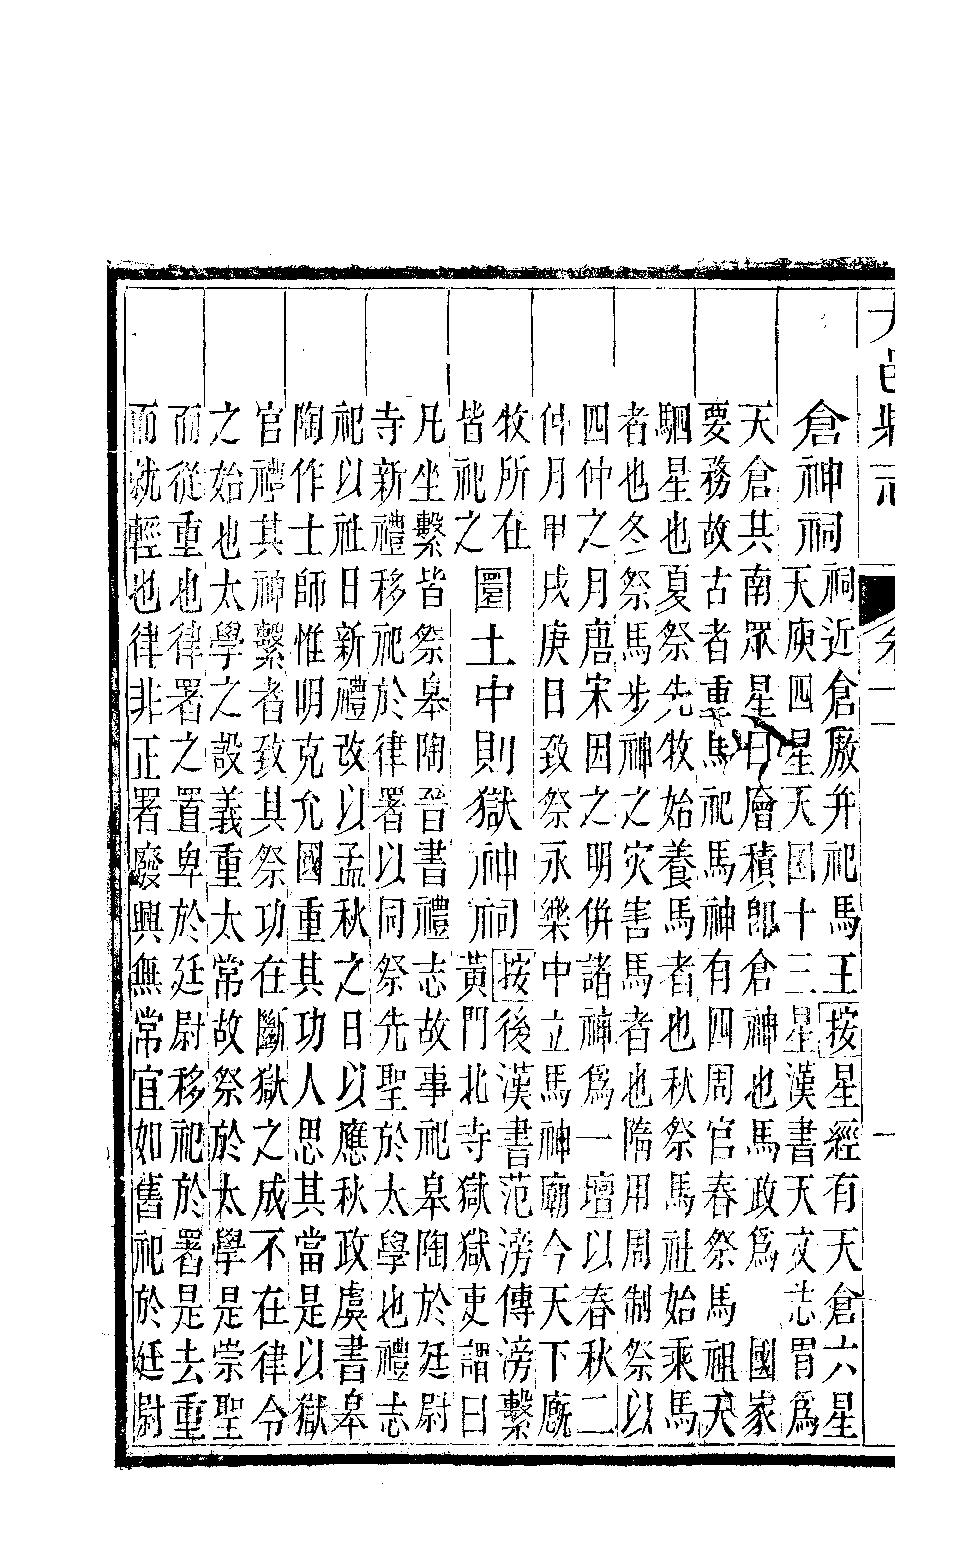 倉神祠
祠近倉廒弁祀馬王按星經有天倉六星
天庾四星天囷十三星漢書天文志胃爲
天倉其南眾星曰廥積郎倉神也馬政爲　國家
要務故古者重馬祀馬神有四周官春祭馬祖天
駟星也夏祭先牧始養馬者也秋祭馬社始乘馬
者也冬祭馬步神之灾害馬者也隋用周制祭以
四仲之月唐宋因之明併諸神爲一壇以春秋二
仲月甲戌庚日致祭永樂中立馬神廟今天下廐
牧所在
皆祀之
圜土中則獄神祠
按後漢書范滂傳滂繫
黃門北寺獄獄吏謂曰
凡坐繫皆祭皋陶晉書禮志故事祀皋陶於廷尉
寺新禮移祀於律署以同祭先聖於太學也禮志
祀以社日新禮改以孟秋之日以應秋政虞書皋
陶作士師惟明克允國重其功人思其當是以獄
官禮其神繫者致其祭功在斷獄之成不在律令
之始也太學之設義重太常故祭於太學是崇聖
而從重也律署之置卑於廷尉移祀於署是去重
而就輕也律非正署廢興無常宜如舊祀於廷尉